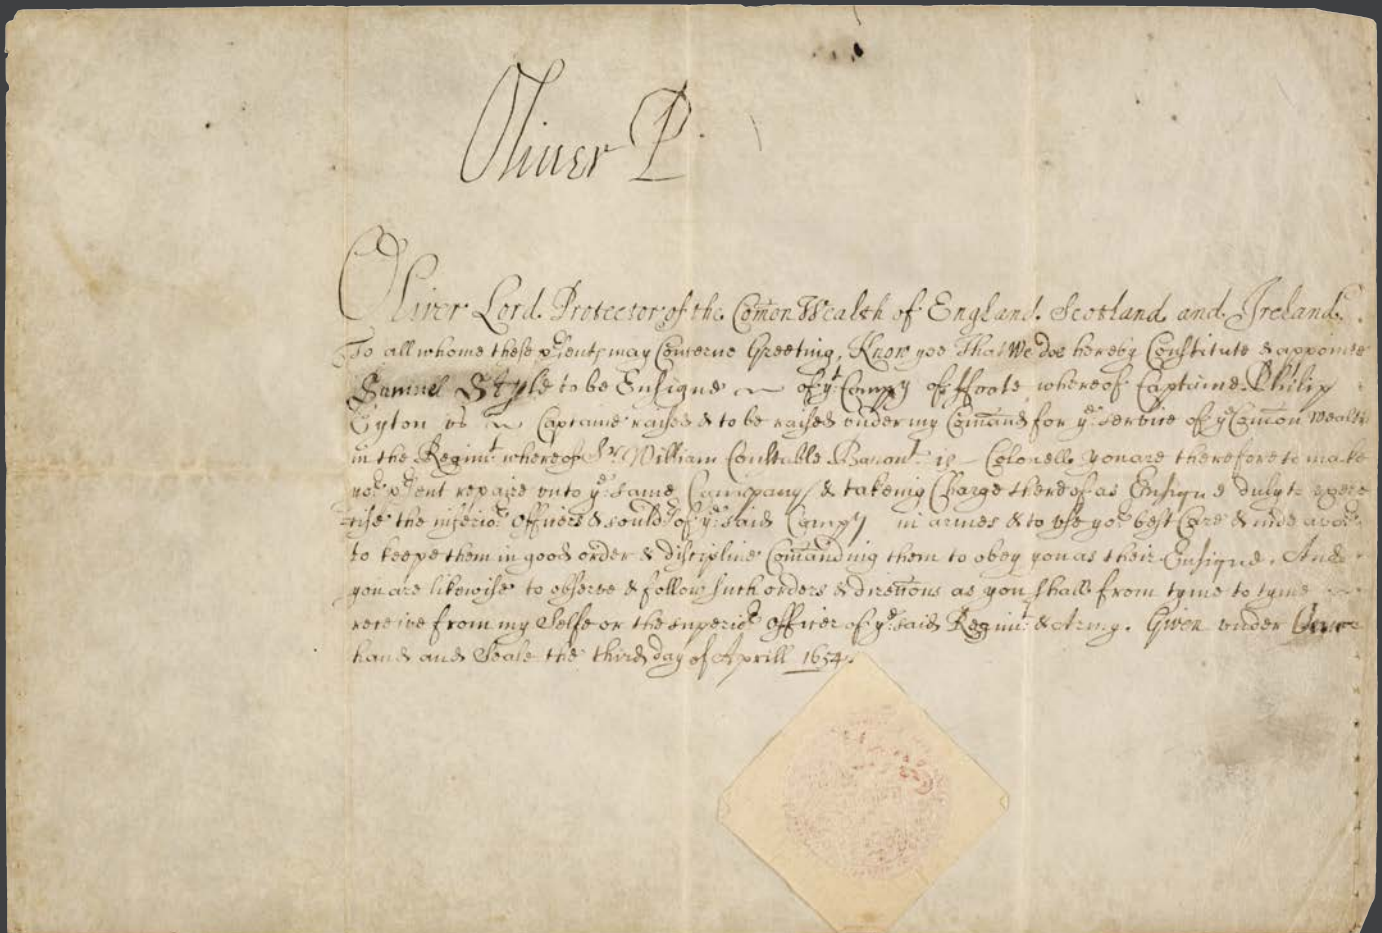 Oliver P.
Oliver Lord Protector of the Com̃on Wealth of England. Scotland and Ireland.
To all whome these p̃sents may Concerne Greeting, Know yoe That We doe hereby Constitute & appointe
Samuel Style to be Ensigne of yᵉ Compy of ffoote, whereof Captaine Philip
Eyton is Captaine raised & to be raised under my Com̃and for yᵉ service of yᵉ Com̃on wealth
in the Regimᵗ whereof Sʳ William Constable Baronᵗ is Colonell. you are therefore to make
yoʳ p̃sent repaire unto yᵉ same Company & takeing Charge thereof as Ensigne duly to exerc
=cise the inferioʳ officers & souldʳˢ of yᵉ said Compy in armes & to use yoʳ best Care & indeavoʳ
to keepe them in good order & discipline Com̃anding them to obey you as their Ensigne. And
you are likewise to observe & follow such orders & direc̃ons as you shall from tyme to tyme
receive from my Selfe or the superioʳ officer of yᵉ said Regimᵗ & Army. Given under
hand and Seale the third day of Aprill 1654.